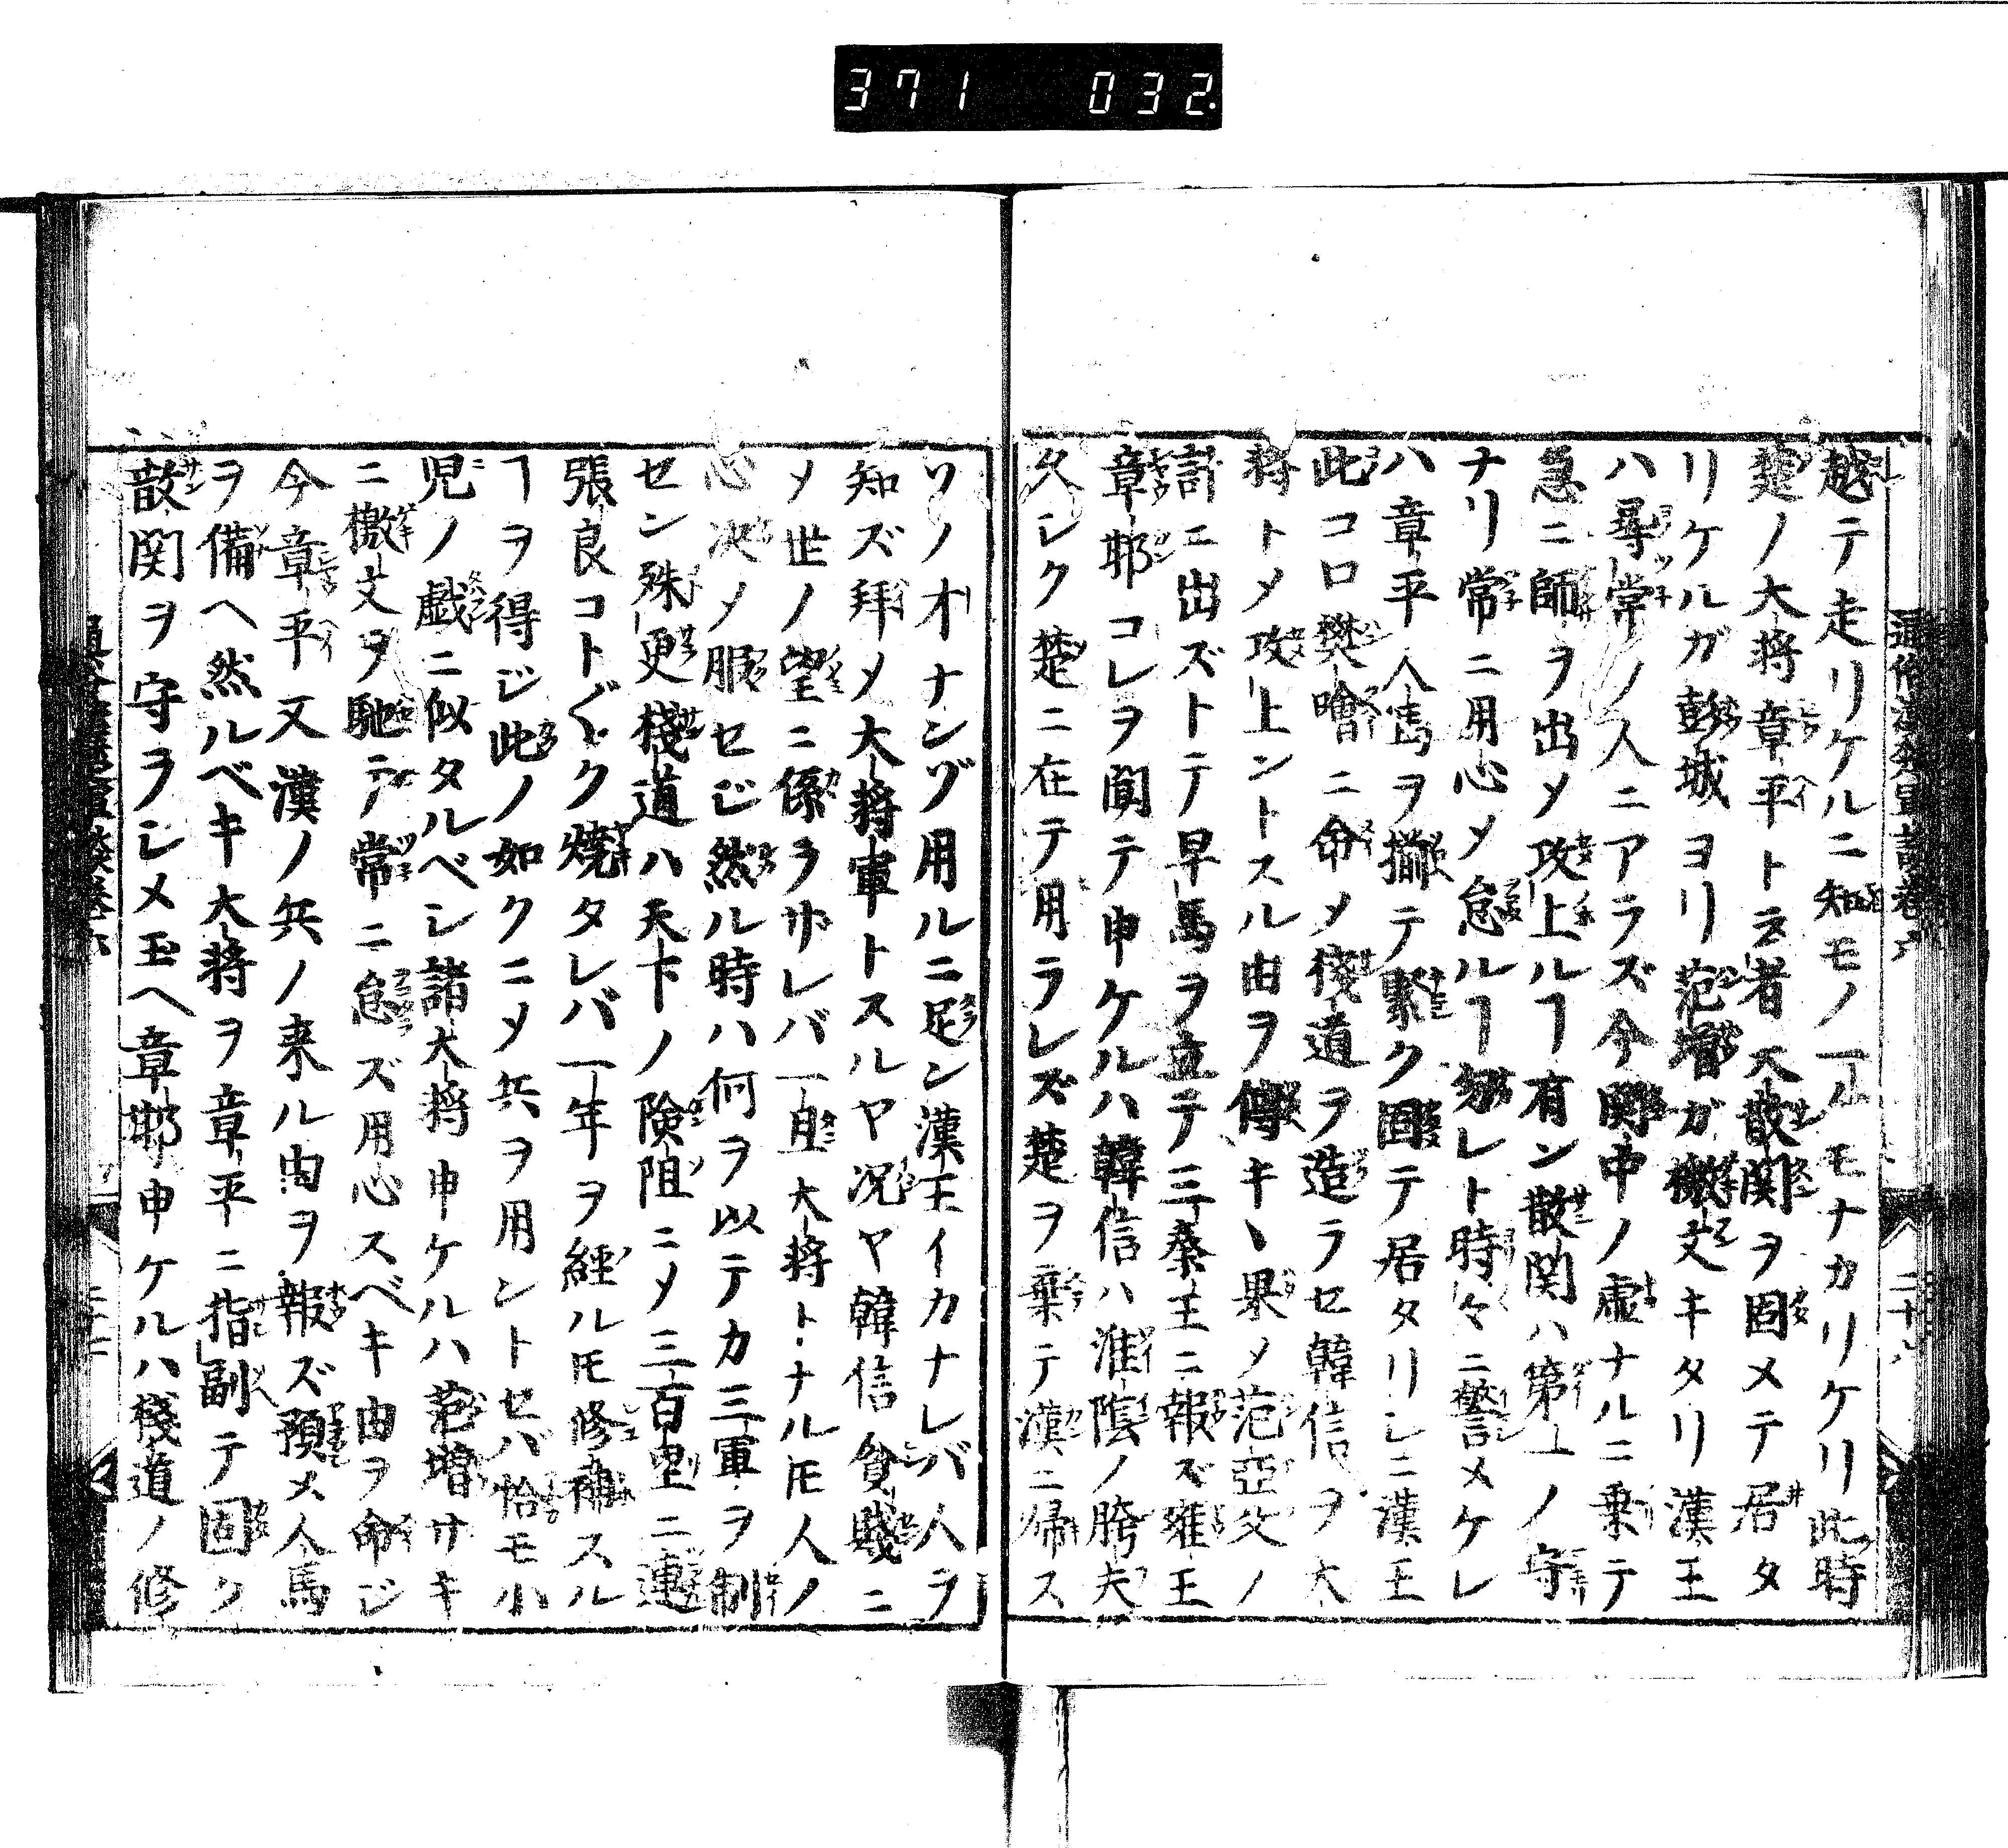 371 032
越テ走リケルニ知モノ一人モナカリケリ此時
楚ノ大将章平ト云者大散関ヲ固メテ居タ
リケルガ彭城ヨリ范増ガ檄文キタリ漢王
ハ尋常ノ人ニアラズ今関中ノ虚ナルニ乗テ
急ニ師ヲ出メ攻上ルヿ有ン散関ハ第一ノ守
ナリ常ニ用心メ怠ルヿ勿レト時々ニ警メケレ
ハ章平人馬ヲ揃テ緊ク固テ居タリシニ漢王
此コロ樊噲ニ命メ棧道ヲ造ラセ韓信ヲ大
将トメ攻上ントスル由ヲ傳キヽ果メ范亜父ノ
計ニ出ズトテ早馬ヲ立テ三秦王ニ報ズ雍王
章邯コレヲ聞テ申ケルハ韓信ハ淮陰ノ胯夫
久シク楚ニ在テ用ラレズ楚ヲ棄テ漢ニ帰ス
ソノオナンゾ用ルニ足ン漢王イカナレバ人ヲ
知ズ拜メ大将軍トスルヤ况ヤ韓信貧賤ニ
メ世ノ望ニ係ラザレバ一旦大将トナルモ人ノ
心决メ服セジ然ル時ハ何ヲ以テカ三軍ヲ制
セン殊更棧道ハ天下ノ険阻ニメ三百里ニ連
張良コト〴〵ク燒タレバ一年ヲ經ルモ修補スル
ヿヲ得ジ此ノ如クニメ兵ヲ用ントセバ恰モ小
児ノ戯ニ似タルベシ諸大将申ケルハ范増サキ
ニ檄文ヲ馳テ常ニ怠ズ用心スベキ由ヲ命ジ
今章平又漢ノ兵ノ来ル由ヲ報ズ預メ人馬
ヲ備ヘ然ルベキ大将ヲ章平ニ指副テ固ク
散関ヲ守ラシメ玉ヘ章邯申ケルハ棧道ノ修